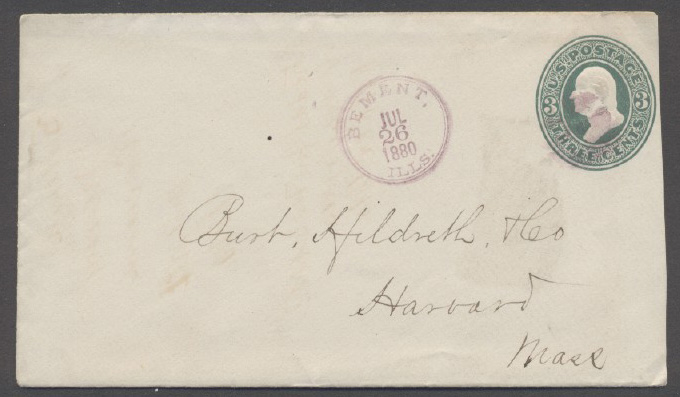 U.S. POSTAGE
3 3
THREE CENTS
BEMENT,
JUL
26
1880
ILLS.
Burt, Hildreth, & Co
Harvard
Mass